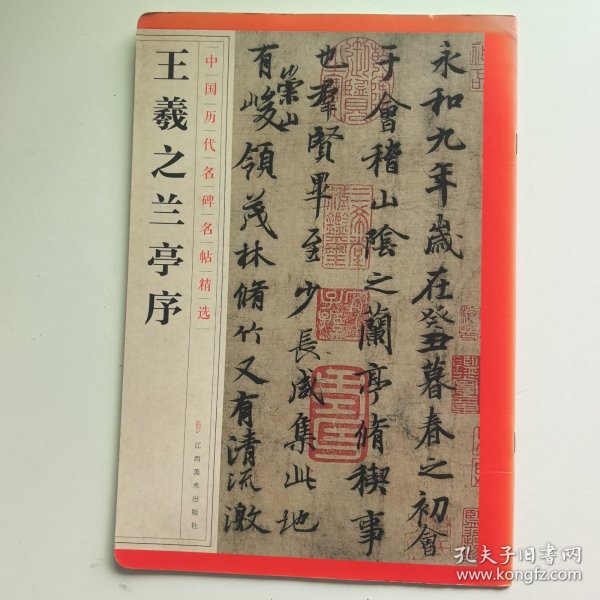 王羲之兰亭序
中国历代名碑名帖精选
江西美术出版社
永和九年歲在癸丑暮春之初會
于會稽山陰之蘭亭脩稧事
也群賢畢至少長咸集此地
有崇山峻領茂林脩竹又有清流激
孔夫子旧书网
www.kongfz.com